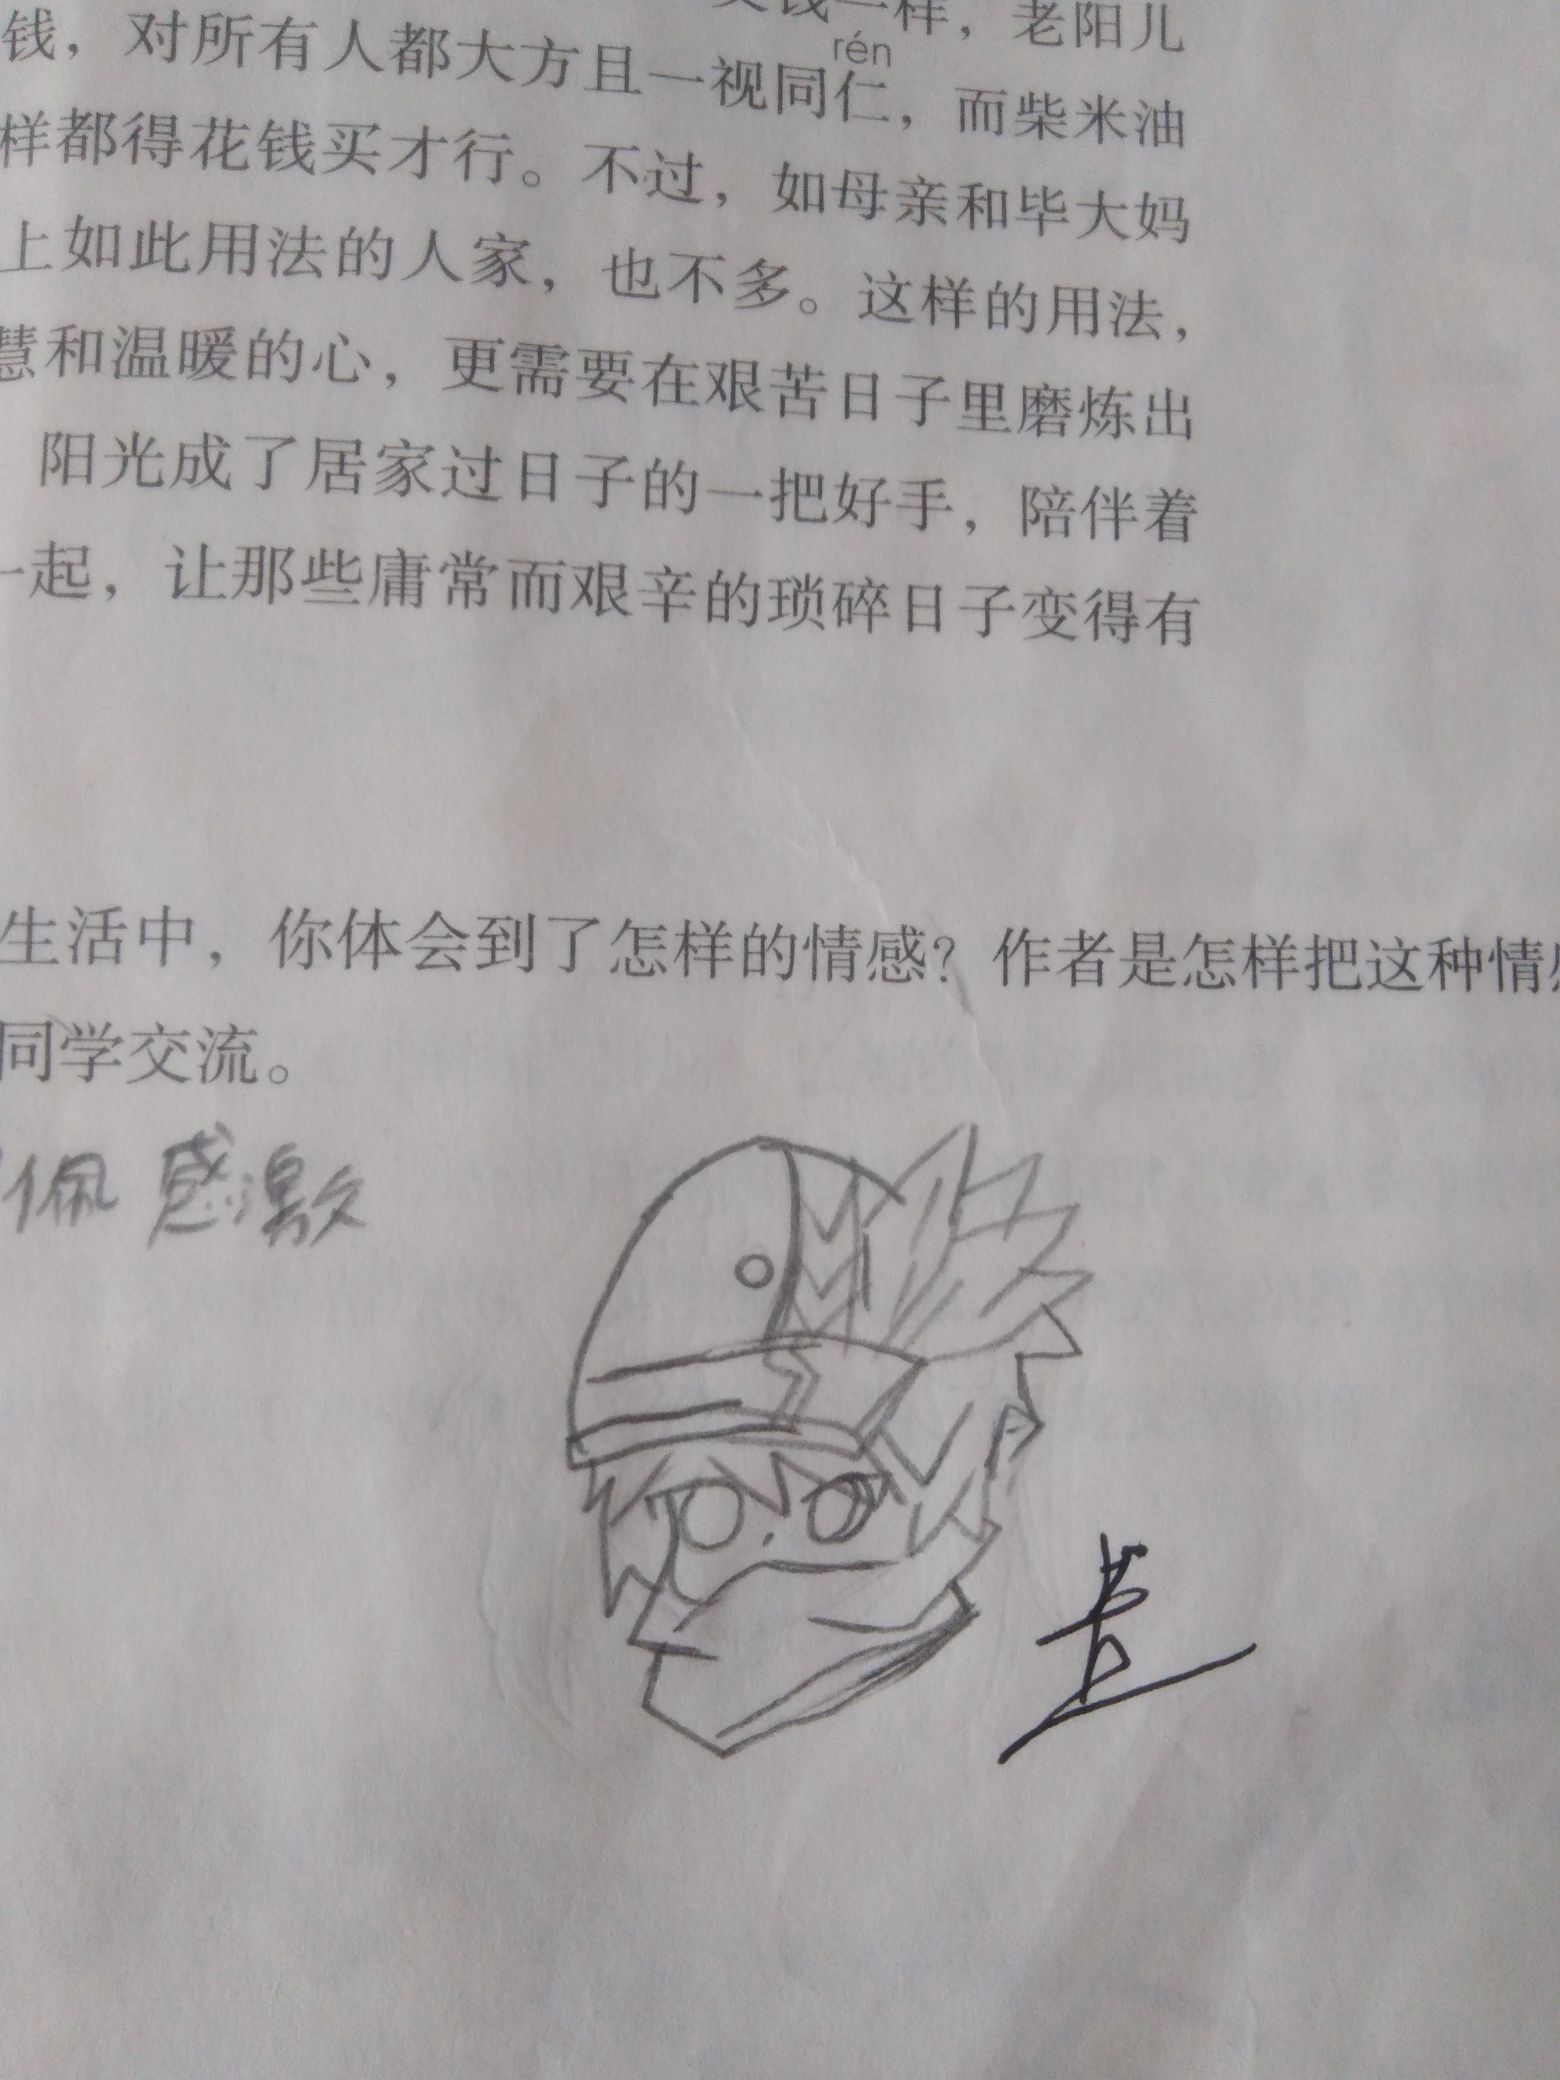 钱一样，老阳儿
rén
钱，对所有人都大方且一视同仁，而柴米油
样都得花钱买才行。不过，如母亲和毕大妈
上如此用法的人家，也不多。这样的用法，
慧和温暖的心，更需要在艰苦日子里磨炼出
阳光成了居家过日子的一把好手，陪伴着
一起，让那些庸常而艰辛的琐碎日子变得有
生活中，你体会到了怎样的情感？作者是怎样把这种情感
同学交流。
佩 感激